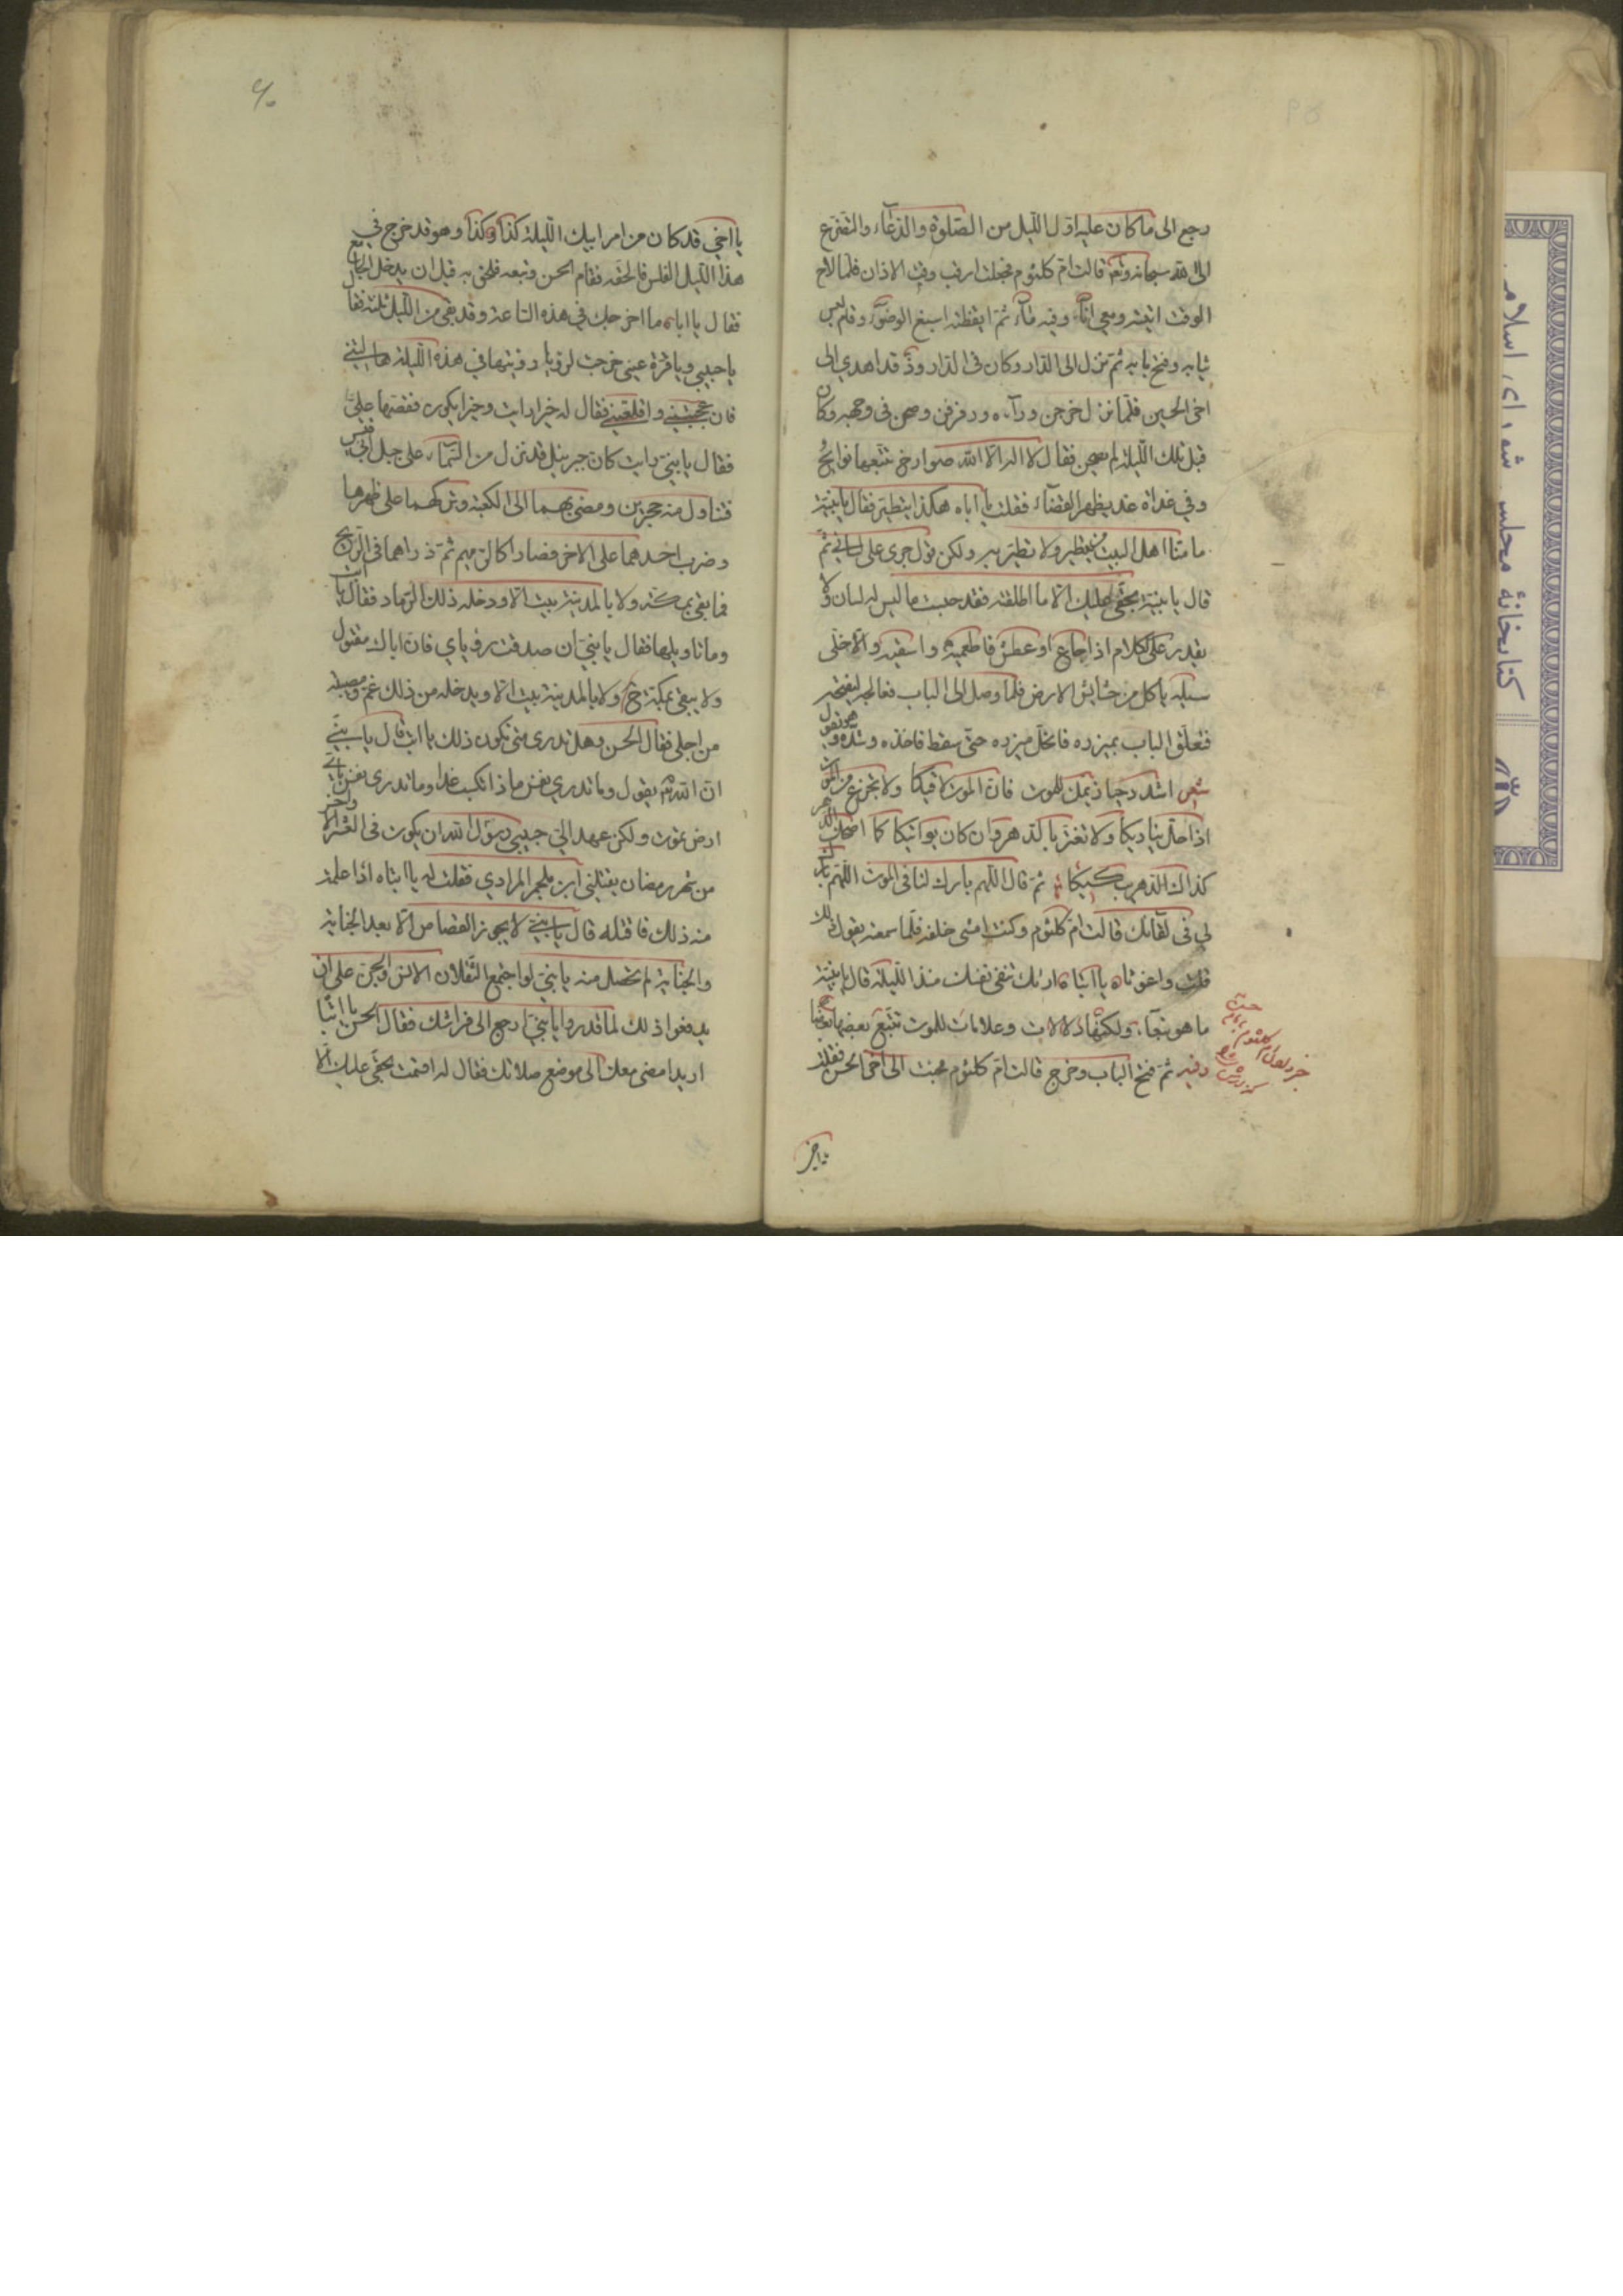 رجع الى ما كان عليه اول الليل من الصلوة والدعاء والتضرع
الى الله سبحانه وتعالى قالت ام كلثوم فجعلت ارقب وقت الاذان فلما لاح
الوقت اتيته ومعي اناء وفيه ماء ثم ايقظته اسبغ الوضوء وقام لبس
ثيابه وفتح بابه ثم نزل الى الدار وكان في الدار وز قد اهدي الى
اخي الحسين فلما نزل خرجن ورآءه ورفرفن وصحن في وجهه وكان
قبل تلك الليلة لم يصحن فقال لا اله الا الله صوارخ تتبعها نوايح
وفي غداة غد يظهر القضاء فقلت يا اباه هكذا تتطير فقال يا بنية
ما منا اهل البيت من يتطير ولا يتطير به ولكن قول جرى على لساني ثم
قال يا بنية بحقي عليك الا ما اطلقته فقد حبست ما ليس له لسان ولا
يقدر على الكلام اذا جاع او عطش فاطعميه واسقيه والا خلي
سبيله ياكل من حشايش الارض فلما وصل الى الباب فعالجه ليفتحه
فتعلق الباب بميزره فانحل ميزره حتى سقط فاخذه وشده وهو يقول
شعر اشدد حيازيمك للموت فان الموت لاقيكا ولا تجزع من الموت
اذا حل بناديكا ولا تغتر بالدهر وان كان يواتيكا كما اضحكك الدهر
كذاك الدهر يبكيكا ثم قال اللهم بارك لنا في الموت اللهم بارك
لي في لقائك قالت ام كلثوم وكنت امشي خلفه فلما سمعته يقول ذلك
قلت واغوثاه يا ابتاه اراك تنعى نفسك منذ الليلة قال يا بنية
ما هو بنعاء ولكنها دلالات وعلامات للموت تتبع بعضها بعضا
ثم فتح الباب وخرج قالت ام كلثوم فجئت الى اخي الحسن فقلت
يا اخي
يا اخي قد كان من امر ابيك الليلة كذا وكذا وهو قد خرج في
هذا الليل الغلس فالحقه فقام الحسن وتبعه فلحق به قبل ان يدخل الجامع
فقال يا اباه ما اخرجك في هذه الساعة وقد بقي من الليل ثلثه فقال
يا حبيبي ويا قرة عيني خرجت لرويا رويتها في هذه الليلة هالتني
وازعجتني واقلقتني فقال له خيرا رايت وخيرا يكون فقصها علي
فقال يا بني رايت كان جبرئيل قد نزل من السماء على جبل ابي قبيس
فتناول منه حجرين ومضى بهما الى الكعبة وتركهما على ظهرها
وضرب احدهما على الاخر فصارا كالرميم ثم ذراهما في الريح
فما بقي بمكة ولا بالمدينة بيت الا ودخله ذلك الرماد فقال يا ابت
وما تاويلها فقال يا بني ان صدقت روياي فان اباك مقتول
ولا يبقى بمكة ولا بالمدينة بيت الا ويدخله من ذلك غم ومصيبة
من اجلي فقال الحسن وهل تدرى متى يكون ذلك يا ابت قال يا بني
ان الله يقول وما تدري نفس ماذا تكسب غدا وما تدرى نفس باي
ارض تموت ولكن عهد الي حبيبي رسول الله ان يكون في العشر الاواخر
من شهر رمضان يقتلني ابن ملجم المرادي فقلت له يا ابتاه اذا علمت
منه ذلك فاقتله قال يا بني لا يجوز القصاص الا بعد الجناية
والجناية لم تحصل منه يا بني لو اجتمع الثقلان الانس والجن على ان
يدفعوا ذلك لما قدروا يا بني ارجع الى فراشك فقال الحسن يا ابتا
اريد امضى معك الى موضع صلاتك فقال له اقسمت بحقي عليك الا
كتابخانهٔ مجلس شورای اسلامی